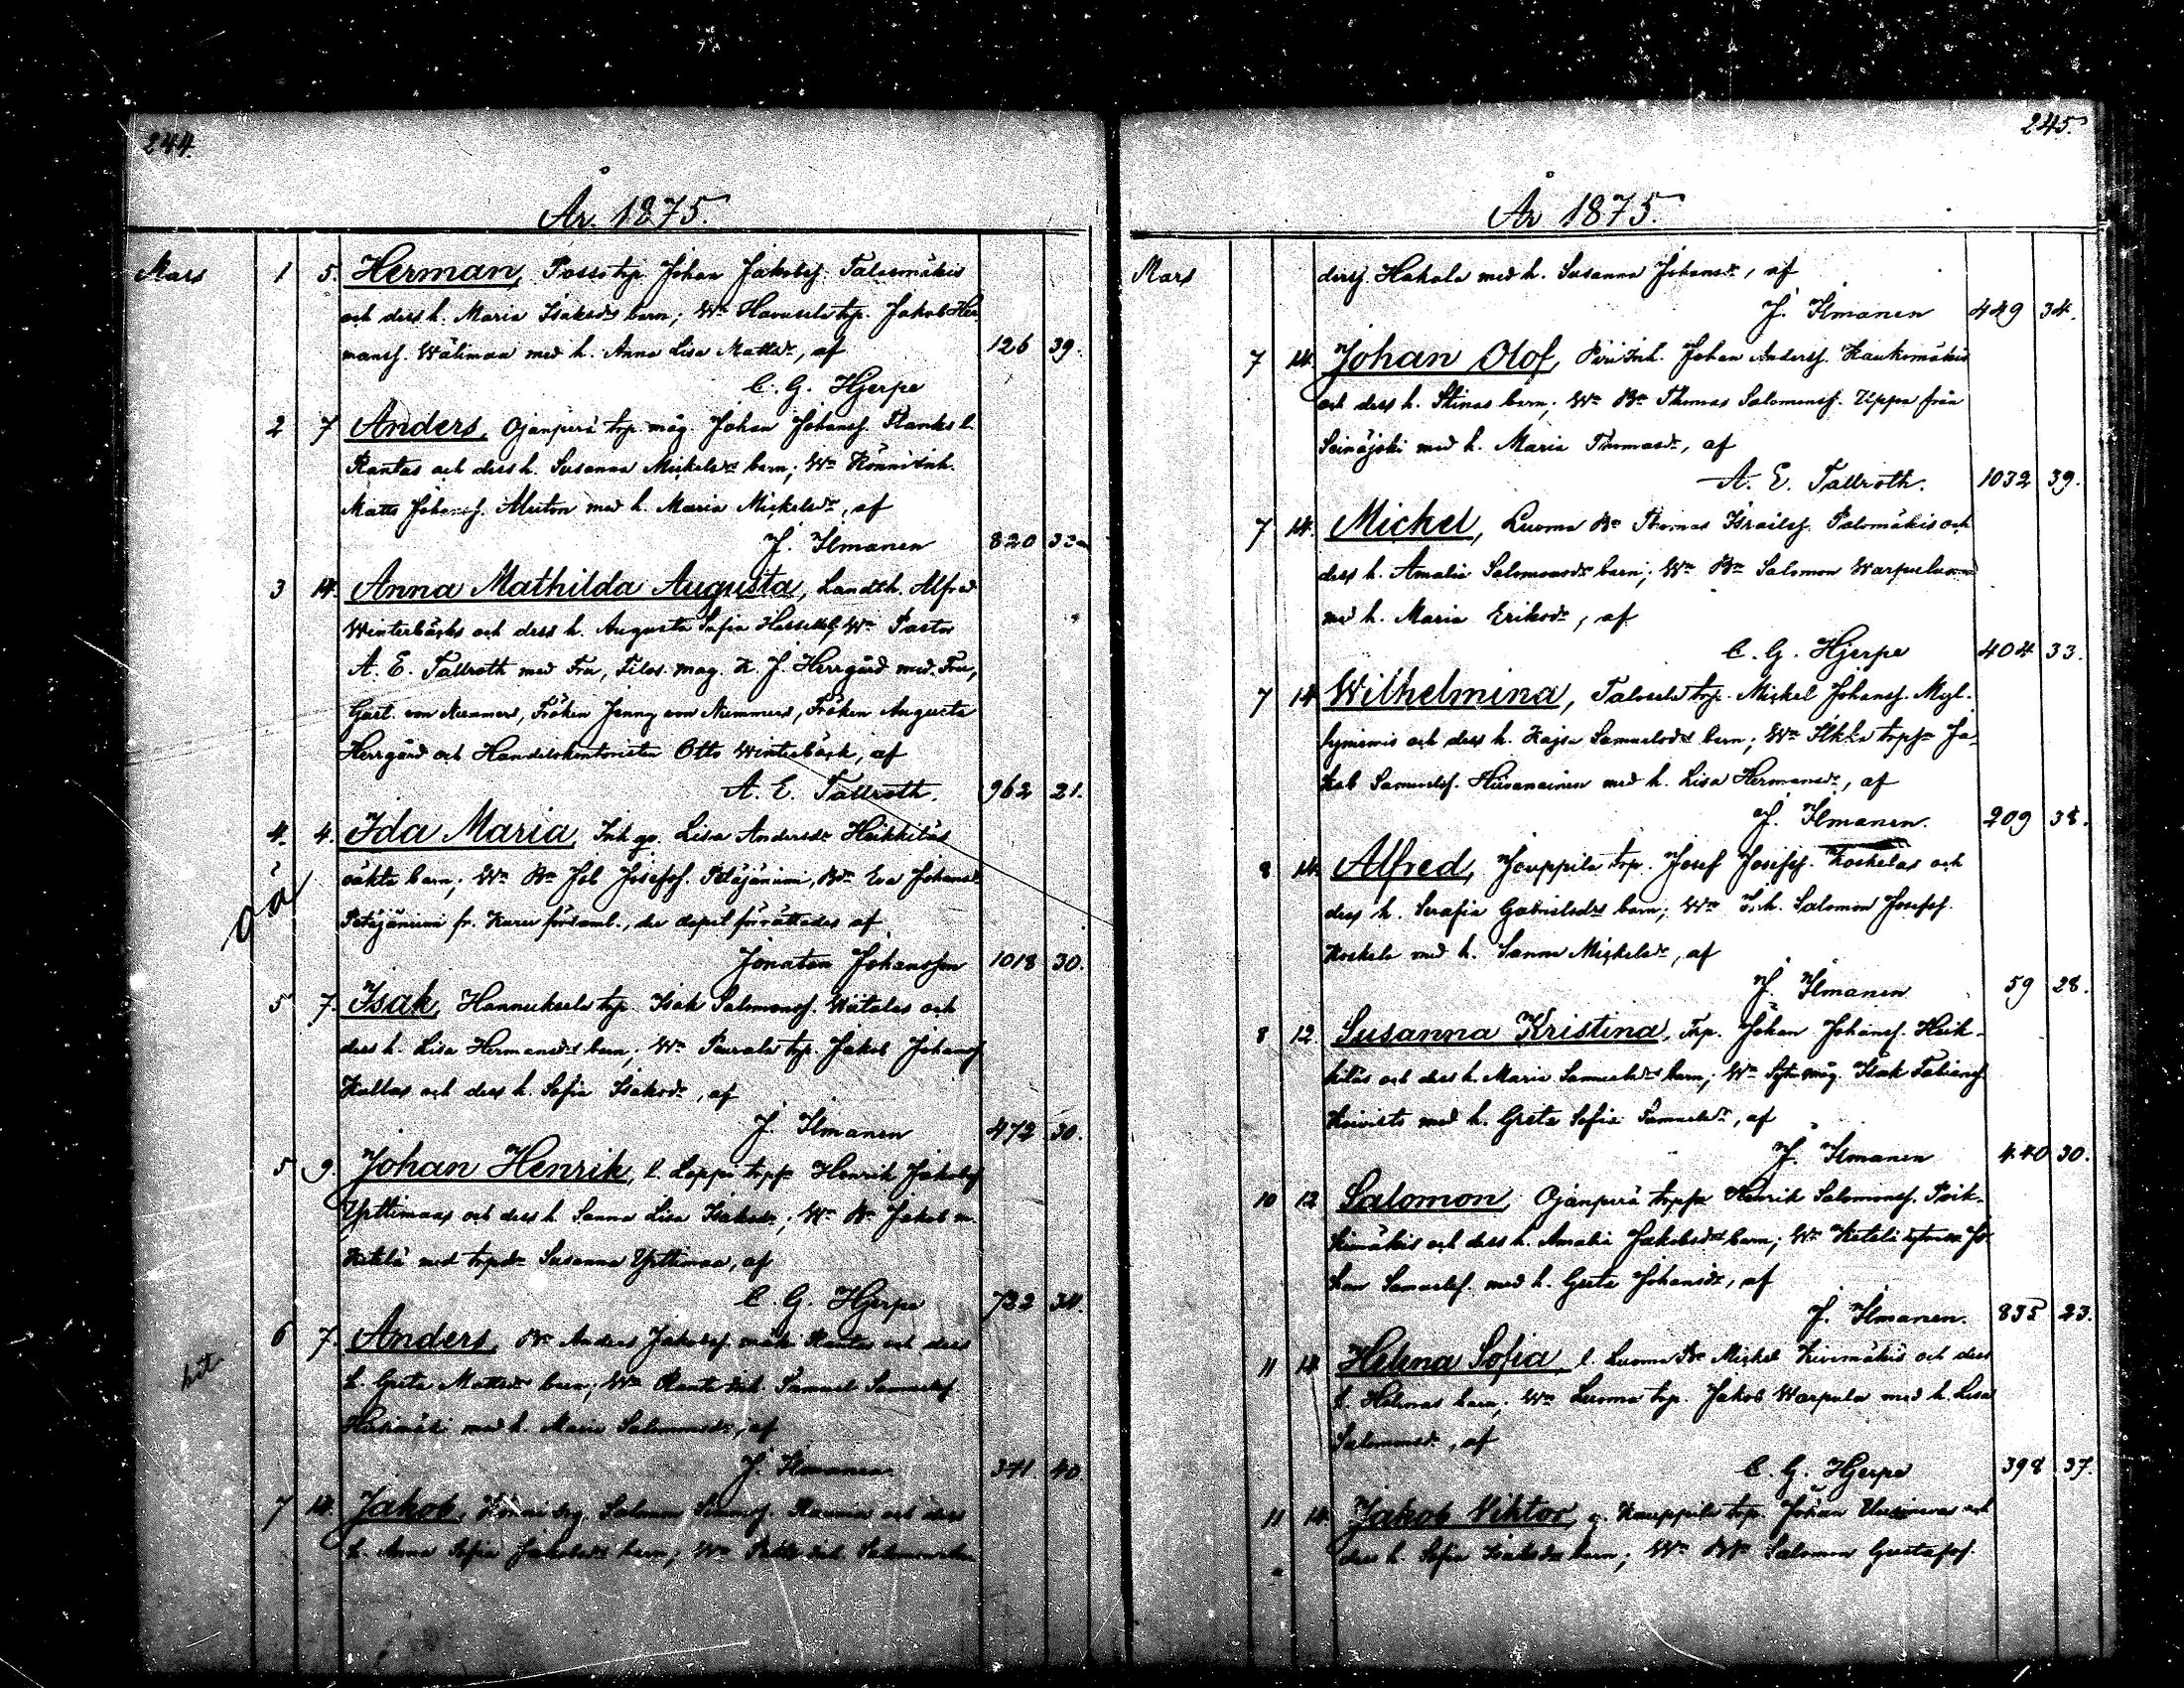 244.
År. 1875.
Mars 1 5. Herman, Passo trp. Johan Jakobsf. Talasmäkis
och dess h. Maria Isaksdrs barn; Wn Havusela trp. Jakob Her-
mansf. Wälimaa med h. Anna Lisa Mattsdr, af 126 39.
C. G. Hjerpe
2 7 Anders, Ojanperä trp. måg Johan Johansf. l.
Rantas och dess h. Susanna Mickelsdrs barn; Wn Könni Inh.
Matts Johansf. med h. Maria Mickelsdr, af
J. Ilmanen 820
3 14. Anna Mathilda Augusta, Landth. Alfred
Winterbäcks och dess h. Augusta Sofia Wn Pastor
A. E. Tallroth med Fru, Filos. mag. K. J. Herrgård med Fru,
von Nummers, Fröken Jenny von Nummers, Fröken Augusta
Herrgård och Handelskontoristen Otto Winterbäck, af
A. E. Tallroth. 962 21.
4. 4. Ida Maria, Inh. qp. Lisa Andersdr Heikkiläs
oäkta barn; Wn Bn Job Josefsf. Petäjäniemi, Bdr Eva Johansdr
Petäjäniemi fr. församl., der dopet förrättades af
Jonatan Johansson 1018 30.
oä
5 7. Isak, Hannuksela trp. Isak Salomonsf. Wiitalas och
dess h. Lisa Hermansdrs barn; Wn Peurala trp. Jakob Johansf
Kallas och dess h. Sofia Isaksdr, af
J. Ilmanen 472 30.
5 9. Johan Henrik, l. Leppi trpsn Henrik Jakobsf
Yrttimaas och dess h. Sanna Lisa Isaksdr; Wn Bn Jakob
Ketelä med trpdr Susanna Yrttimaa, af
C. G. Hjerpe 722 34.
6 7. Anders, Bn Anders Jakobsf. Rantas och dess
h. Greta Mattsdrs barn; Wn Ranta Inh. Samuel Samuelsf.
med h. Maria Salomonsdr, af
J. Ilmanen 371 40
7 14. Jakob, Könni Salomon och dess
h. Anna Sofia Jakobsdrs barn; Wn Inh.
245.
År 1875.
Mars dersf. Hakala med h. Susanna Johansdr, af
J. Ilmanen 449 34.
7 14. Johan Olof, Inh. Johan Andersf. Kaukomäkis
och dess h. Stinas barn; Wn Bn Thomas Salomonsf. Uppa från
Seinäjoki med h. Maria Thomasdr, af
A. E. Tallroth. 1032 39.
7 14. Mickel, Luoma Bn Thomas Israilsf. Palomäkis och
dess h. Amalia Salomonsdrs barn; Wn Bn Salomon Warpuluoma
med h. Maria Eriksdr, af
C. G. Hjerpe 404 33.
7 14 Wilhelmina, Talosela trp. Mickel Johansf. Myl-
lyniemis och dess h. Kajsa Samuelsdrs barn; Wn Ilkka trpsn Ja-
kob Samuelsf. Hiivanainen med h. Lisa Hermansdr, af
J. Ilmanen. 209 38.
8 14. Alfred, Jouppila trp. Josef Josefsf. Koskelas och
dess h. Serafia Gabrielsdrs barn; Wn Inh. Salomon Josefsf.
Koskela med h. Sanna Mickelsdr, af
J. Ilmanen 59 28.
8 12. Susanna Kristina, Trp. Johan Johansf. Heik-
kiläs och dess h. Maria Samuelsdrs barn; Wn måg Isak Fabiansf.
Koivisto med h. Greta Sofia Samuelsdr, af
J. Ilmanen 440 30.
10 12 Salomon, Ojanperä trpsn Henrik Salomonsf. Poik-
kimäkis och dess h. Amalia Jakobsdrs barn; Wn Ketelä Jo-
han Samuelsf. med h. Greta Johansdr, af
J. Ilmanen. 835 23.
11 14. Helena Sofia, l. Luoma Bn Mickel Kivimäkis och dess
h. Helenas barn; Wn Luoma trp. Jakob Warpula med h. Lisa
Salomonsdr, af
C. G. Hjerpe 398 37.
11 14. Jakob Viktor, g. Kauppila trp. Johan och
dess h. Sofia Isaksdrs barn; Wn Bn Salomon Gustafsf.